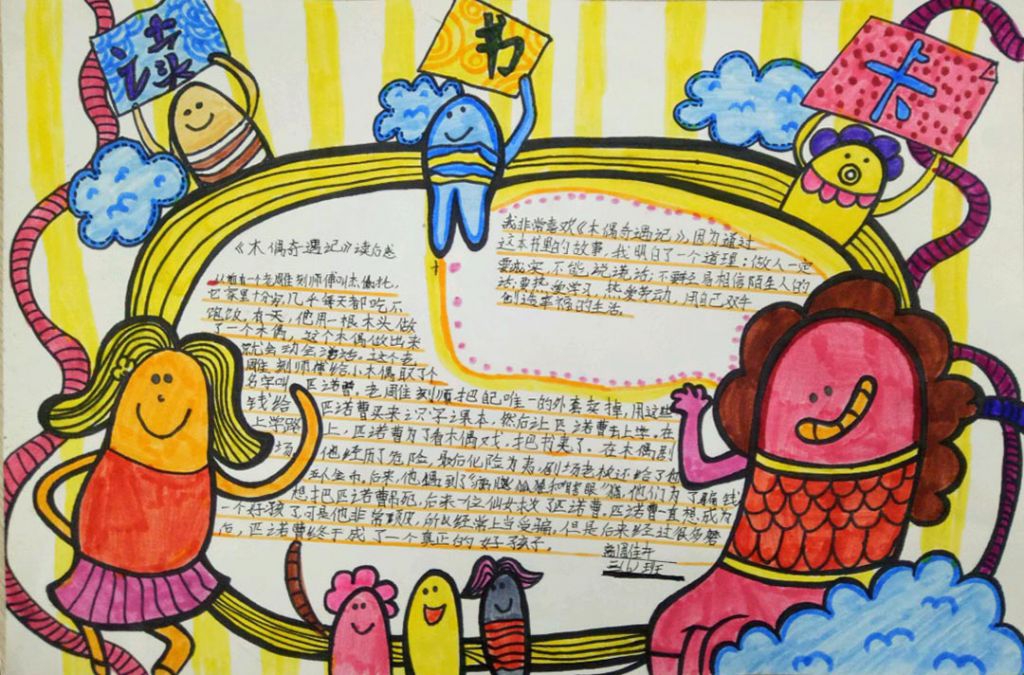 读
书
卡
《木偶奇遇记》读后感
从前有一个老雕刻师傅叫杰佩托,
它家里十分穷,几乎每天都吃不
饱饭。有天,他用一根木头做
了一个木偶,这个木偶做出来
就会动会说话。这个老
雕刻师傅给小木偶取了个
名字叫匹诺曹。老雕刻师把自己唯一的外套卖掉,用这些
钱给匹诺曹买来识字课本,然后让匹诺曹去上学,在
上学路上,匹诺曹为了看木偶戏,把书卖了。在木偶剧
场,他经历了危险,最后化险为夷,剧场老板还给了他
五个金币,后来,他遇到了瘸腿狐狸和瞎眼猫,他们为了骗钱
想把匹诺曹吊死,后来一位仙女救了匹诺曹,匹诺曹一直想成为
一个好孩子可是他非常顽皮,所以经常上当受骗,但是后来经过很多磨
后,匹诺曹终于成了一个真正的好孩子。
我非常喜欢《木偶奇遇记》,因为通过
这本书里的故事,我明白了一个道理:做人一定
要诚实,不能说谎话;不要轻易相信陌生人的
话;要热爱学习,热爱劳动,用自己双手
创造幸福的生活。
三(6)班